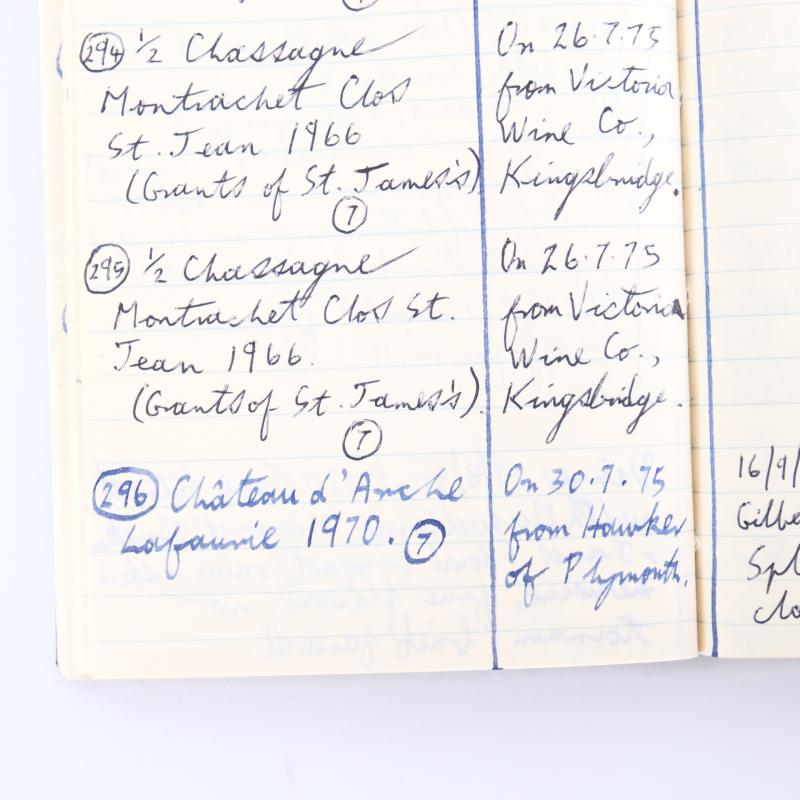 (294) ½ Chassagne
Montrachet Clos
St. Jean 1966
(Grants of St. James's)
(7)
On 26.7.75
from Victoria
Wine Co.,
Kingsbridge.
(295) ½ Chassagne
Montrachet Clos St.
Jean 1966.
(Grants of St. James's).
(7)
On 26.7.75
from Victoria
Wine Co.,
Kingsbridge.
(296) Château d'Arche
Lafaurie 1970. (7)
On 30.7.75
from Hawker
of Plymouth.
16/9/